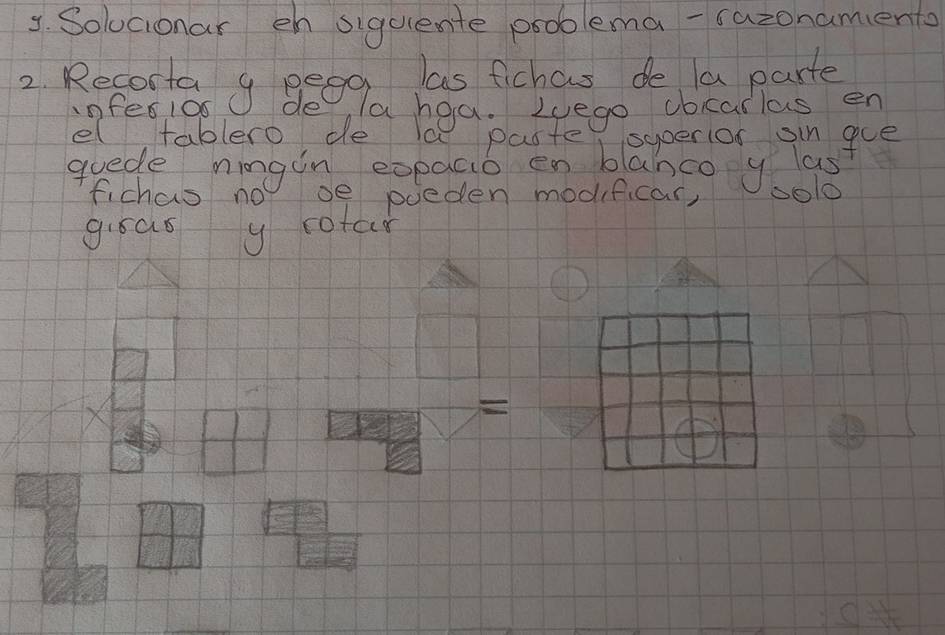 1. Solucionar eh siguiente problema - razonamiento
2. Recorta y pega las fichas de la parte
inferior de la hoja. Luego ubicarlas en
el tablero de la parte superior sin que
quede ningún espacio en blanco y las
fichas no se pueden modificar, solo
girar y rotar
=